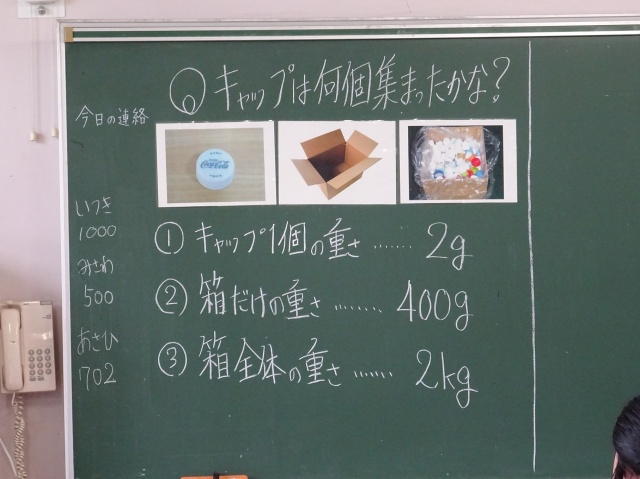 Q キャップは何個集まったかな？
今日の連絡
Coca-Cola
いつき
1000
みさわ
500
あさひ
702
① キャップ1個の重さ…… 2g
② 箱だけの重さ…… 400g
③ 箱全体の重さ…… 2kg